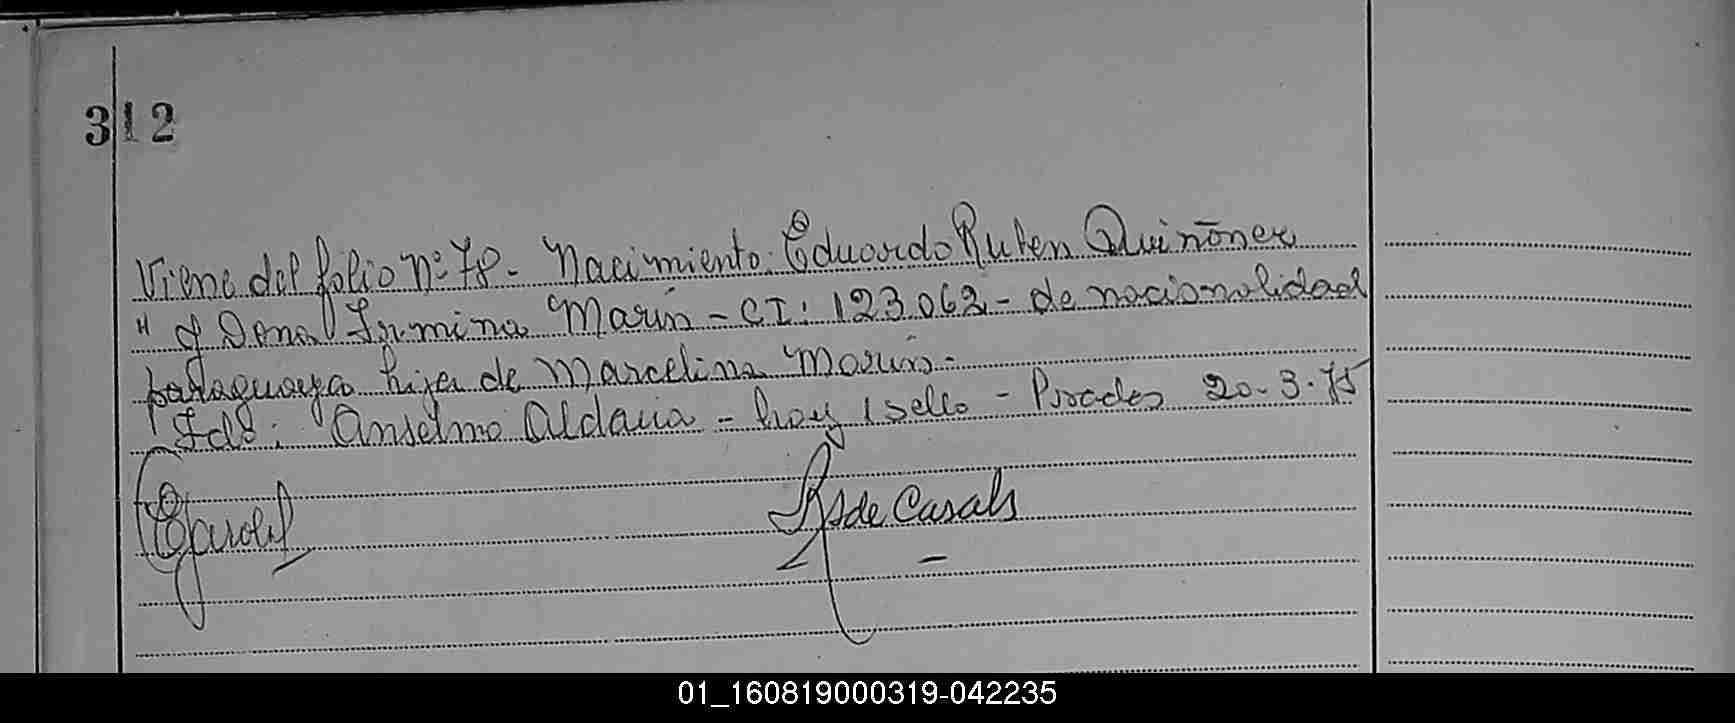 312
Viene del folio nº 78 - Nacimiento: Eduardo Ruben Quiñonez
" y Dona Irmina Marin - CI: 123.062 - de nacionalidad
paraguaya hija de Marcelina Marin -
Fdo: Anselmo Aldana - hay 1 sello - Prades 20-3-75
de Casals
01_160819000319-042235